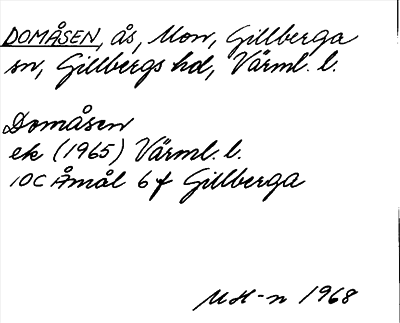 DOMÅSEN, ås, Mon, Gillberga
sn, Gillbergs hd, Värml. l.
Domåsen
ek (1965) Värml. l.
10C Åmål 6f Gillberga
MH-n 1968